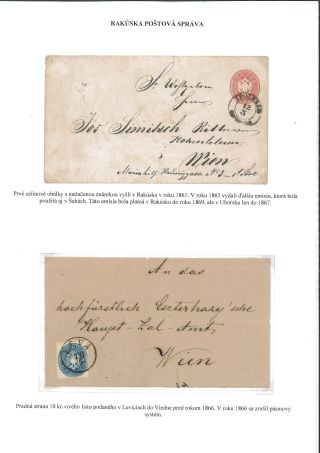 RAKÚSKA POŠTOVÁ SPRÁVA
Sr Wohlgeborn
Herrn
Jos
Wien
Prvé celinové obálky s natlačenou známkou vyšli v Rakúsku v roku 1861. V roku 1863 vydali ďalšiu emisiu, ktorá bola
použitá aj v Šahách. Táto emisia bola platná v Rakúsku do roku 1869, ale v Uhorsku len do 1867.
An das
hochfürstlich Eszterhazy'sche
Haupt-Zal-Amt
Wien
Predná strana 10 kr.-ového listu podaného v Leviciach do Viedne pred rokom 1866. V roku 1866 sa zrušil pásmový
systém.